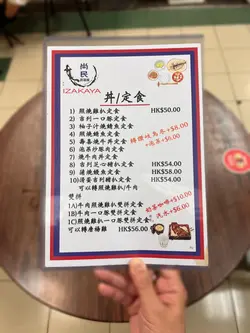 尚民
居酒屋
IZAKAYA
丼/定食
1) 照燒雞扒定食 HK$50.00
2) 吉列一口豚定食
3) 柚子汁燒鯖魚定食
4) 照燒鯖魚定食
5) 壽喜燒牛丼定食
6) 泡菜炒豚肉定食
7) 燒肉牛丼定食
8) 吉列芝心豬扒定食 HK$54.00
9) 蒲燒鰻魚定食 HK$58.00
10) 滑蛋吉列豬扒定食 HK$54.00
可以轉照燒雞扒/牛肉
轉讚岐烏冬+$8.00
雙拼
1A) 牛肉照燒雞扒雙拼定食
1B) 牛肉一口豚雙拼定食
1C) 照燒雞扒一口豚雙拼定食
可以轉唐楊雞 HK$56.00
+$10.00
+$6.00